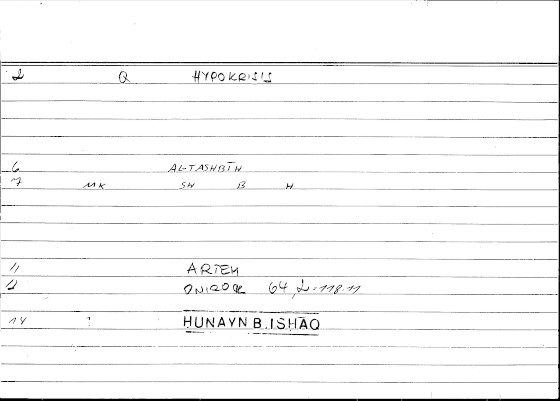 2 Q HYPOKRISIS
6 AL-TASHBĪH
7 MK SH B H
11 ARTEM
12 ONIROCR 64,2-118.11
14 HUNAYN B. ISHĀQ